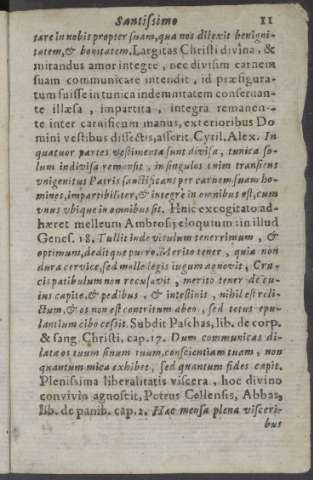 Santissimo 11
tare in nobis propter suam, qua nos dilexit benigni-
tatem, & bonitatem. Largitas Christi divina, &
mirandus amor integrè, nec divisim carnem
suam communicare intendit, id præfigura-
tum fuisse in tunica indemnitatem conservan-
te illæsa, impartita, integra remanen-
te inter carnificum manus, exterioribus Do
mini vestibus dissectis, asserit. Cyril. Alex. In
quatuor partes vestimenta sunt divisa, tunica so-
lum indivisa remansit, in singulos enim transiens
vnigenitus Patris sanctificans per carnem suam ho-
mines, impartibiliter, & integrè in omnibus est, cum
vnus vbique in omnibus sit. Huic excogitato ad-
hæret melleum Ambrosij eloquium: in illud
Genes. 18. Tullit inde vitulum tenerrimum, &
optimum, deditque puero. Merito tener, quia non
dura cervice, sed molle legis iugum agnovit, Cru-
cis patibulum non recusavit, merito tener de cu-
ius capite, & pedibus, & intestinis, nihil est reli-
ctum, & os non est contritum abeo, sed totus epu-
lantium cibo cessit. Subdit Paschas, lib. de corp.
& sang. Christi, cap. 17. Dum communicas di-
lata os tuum sinum tuum, conscientiam tuam, non
quantum mica exhibet, sed quantum fides capit.
Plenissima liberalitatis viscera, hoc divino
convivio agnoscit, Petrus Cellensis, Abbas,
lib. de panib. cap. 2. Hac mensa plena visceri-
bus